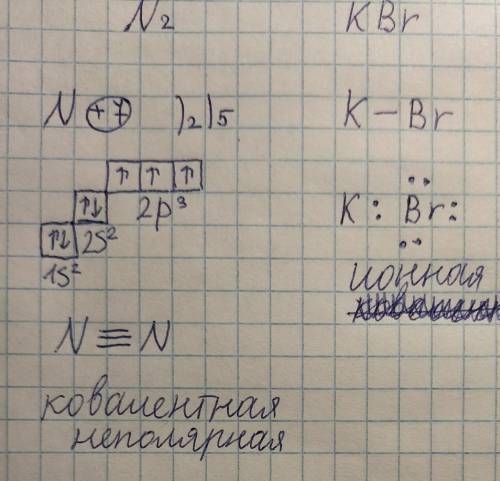 N₂
N +7 )₂)₅
↑ ↑ ↑
↑↓ 2p³
↑↓ 2S²
1S²
N ≡ N
ковалентная
неполярная
KBr
K – Br
K : Br :
ионная